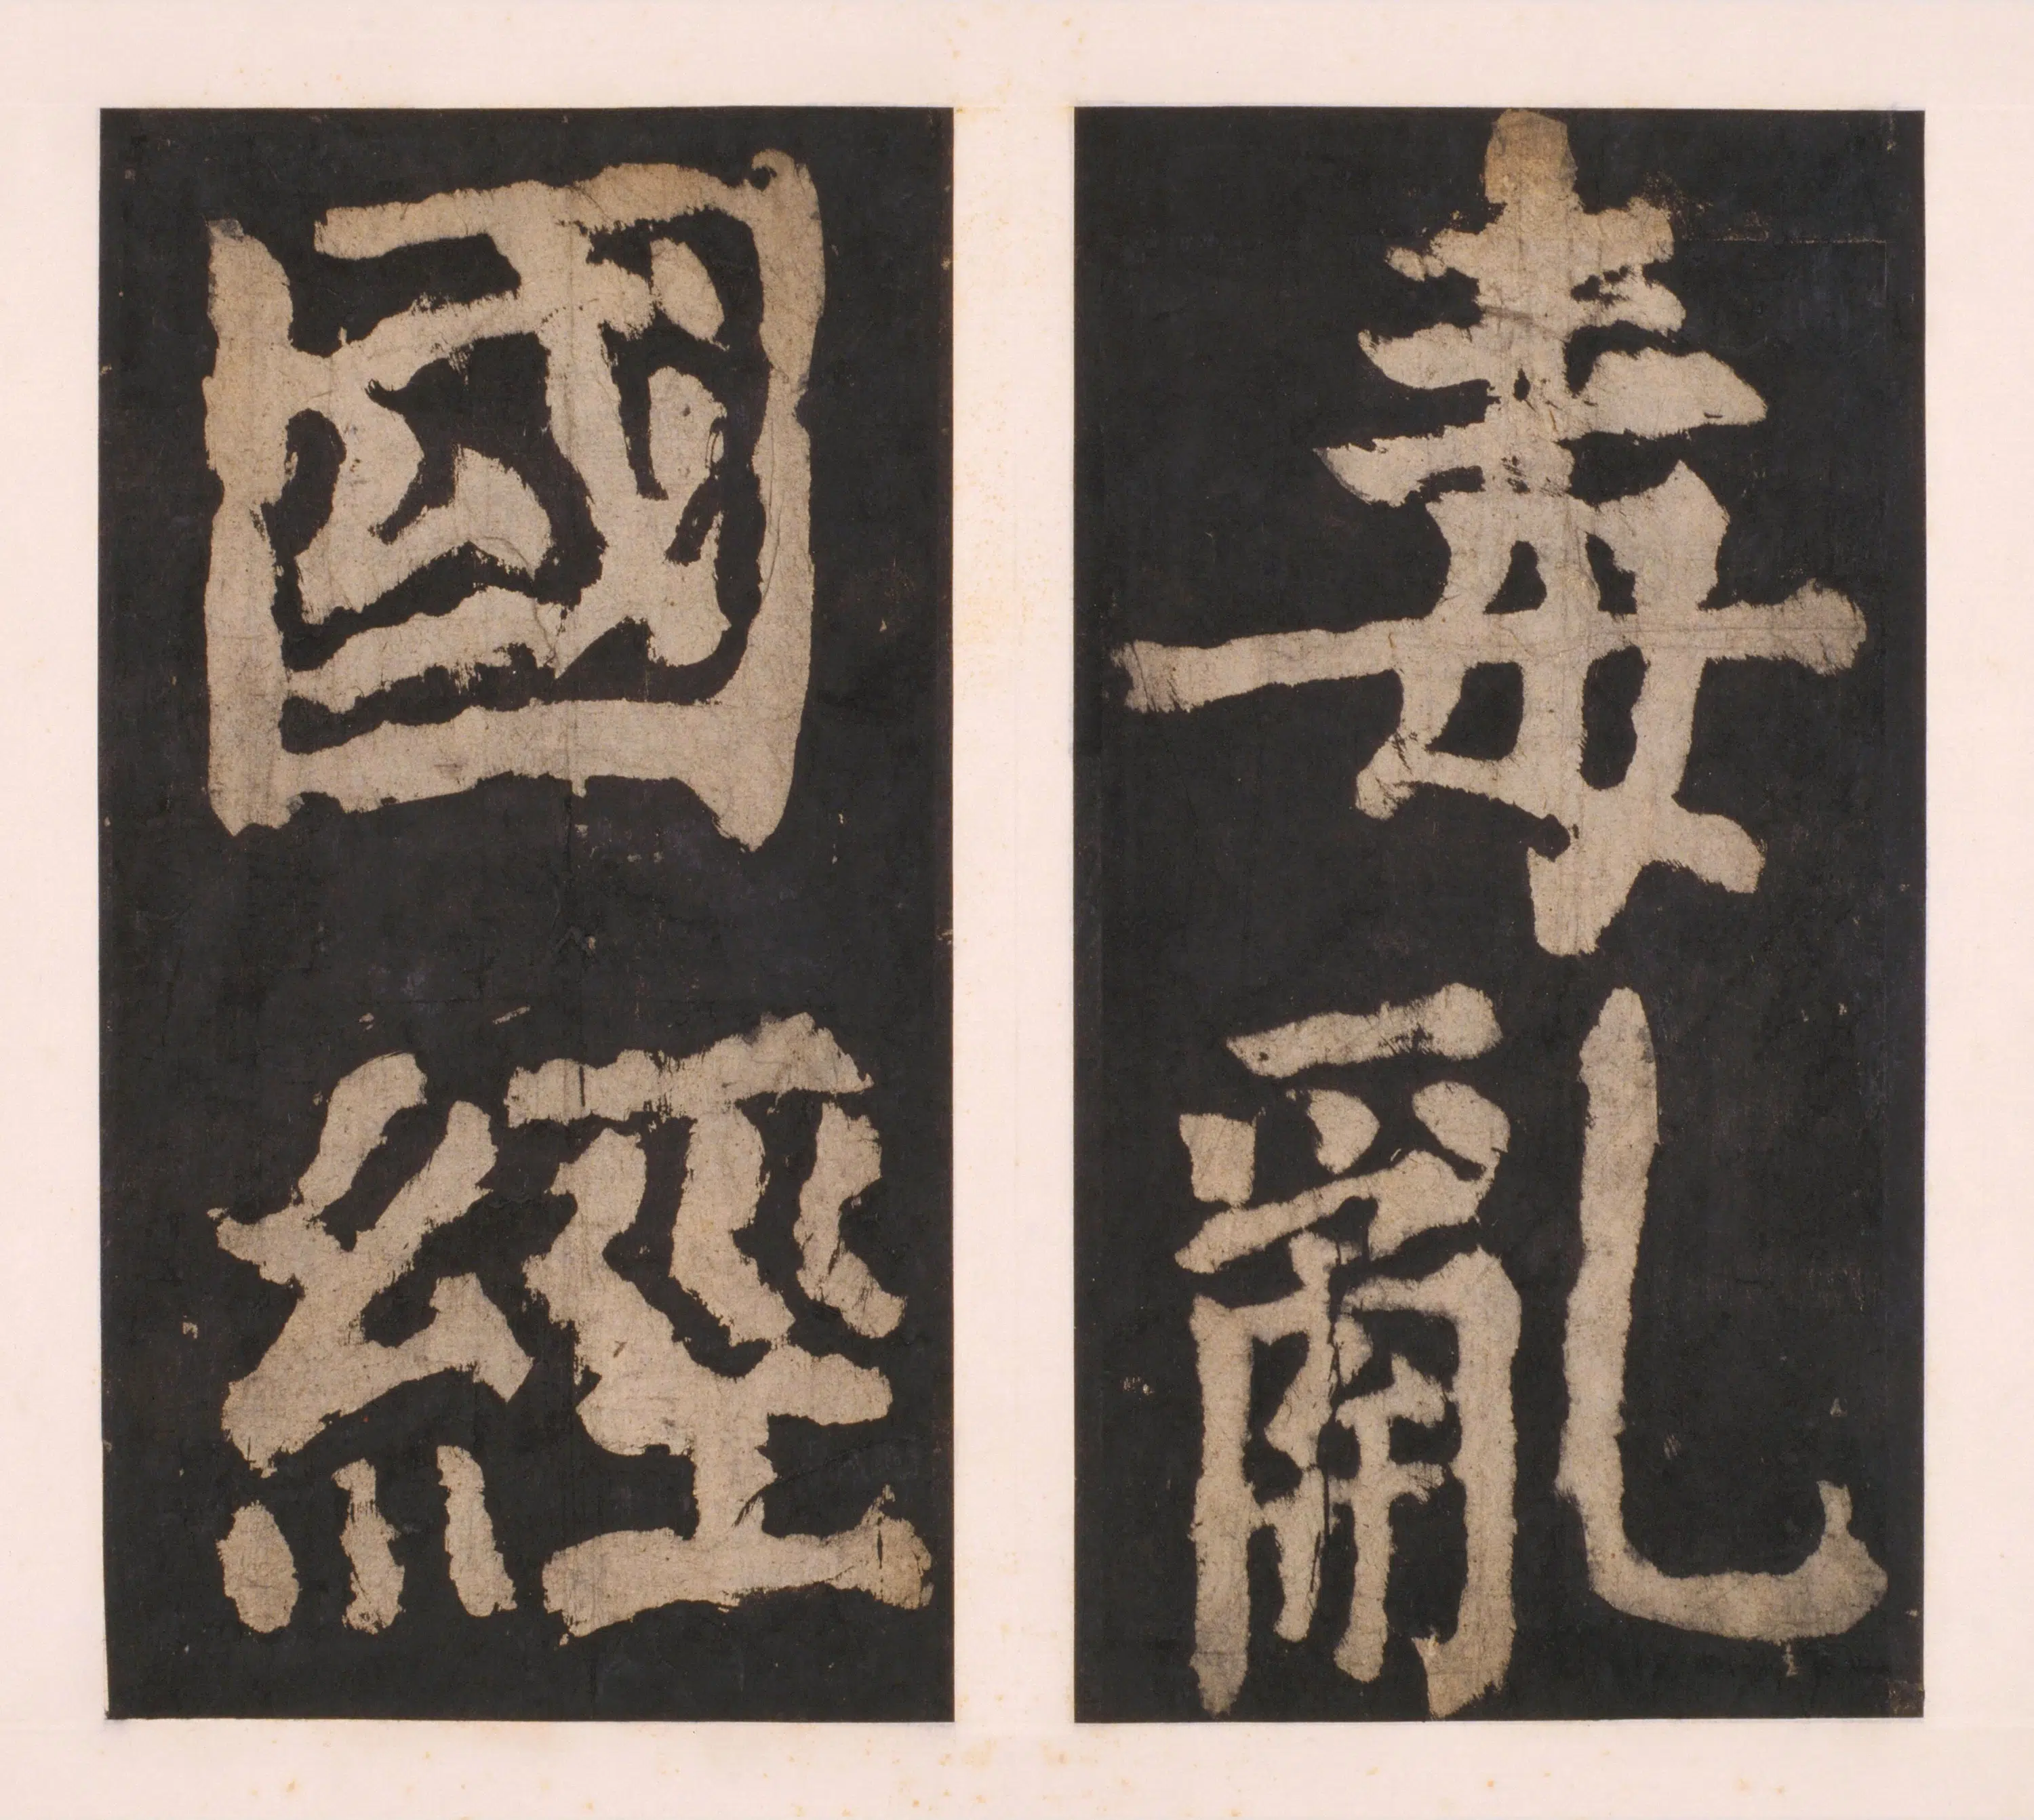 毒亂
國經